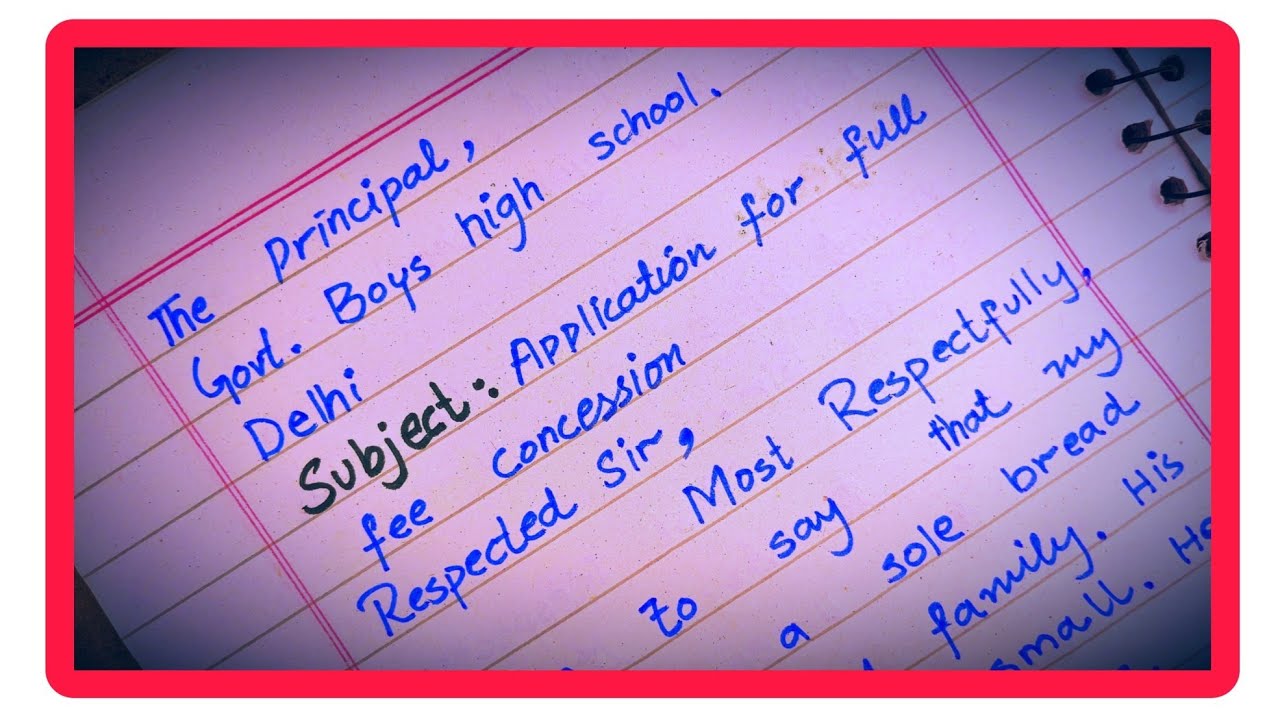 The principal,
Govt. Boys high school.
Delhi
Subject: Application for full
fee concession
Respected Sir,
Most Respectfully,
to say that my
a sole bread
family. His
small. He